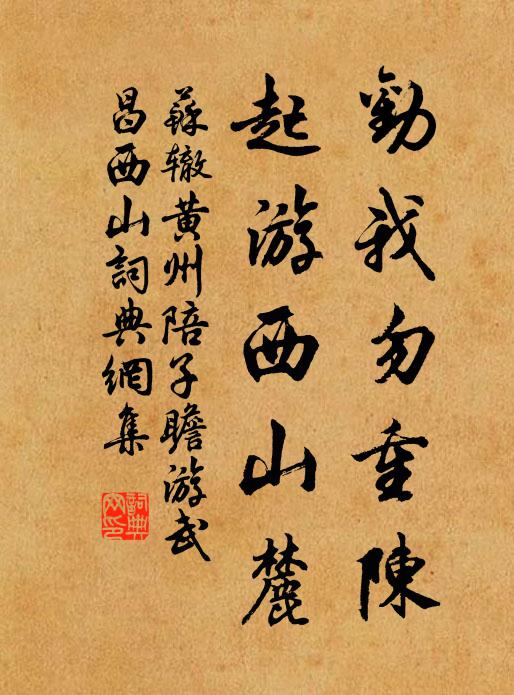 勸我勿重陳
起游西山麓
蘇辙黄州陪子瞻游武
昌西山詞典網集
詞典网印